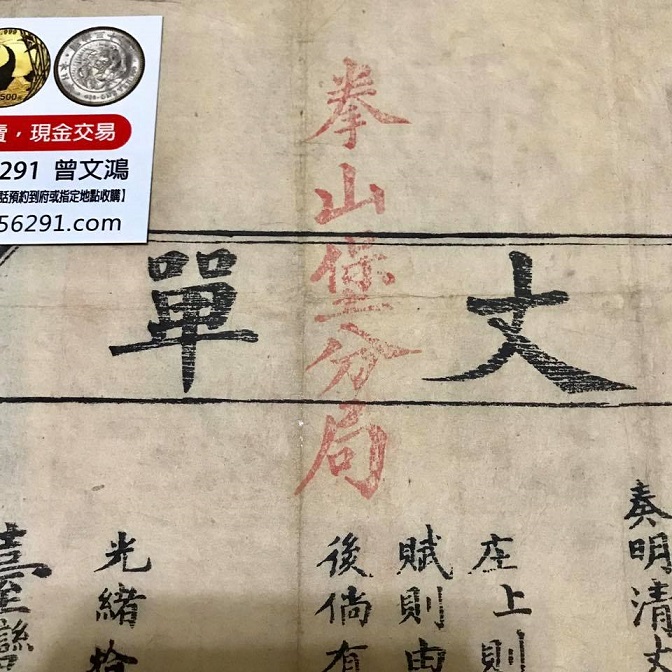 拳山堡分局
丈單
奏明清丈
庄上則
賦則由
後倘有
光緒拾
臺灣
500元
賣，現金交易
291 曾文鴻
話預約到府或指定地點收購】
56291.com